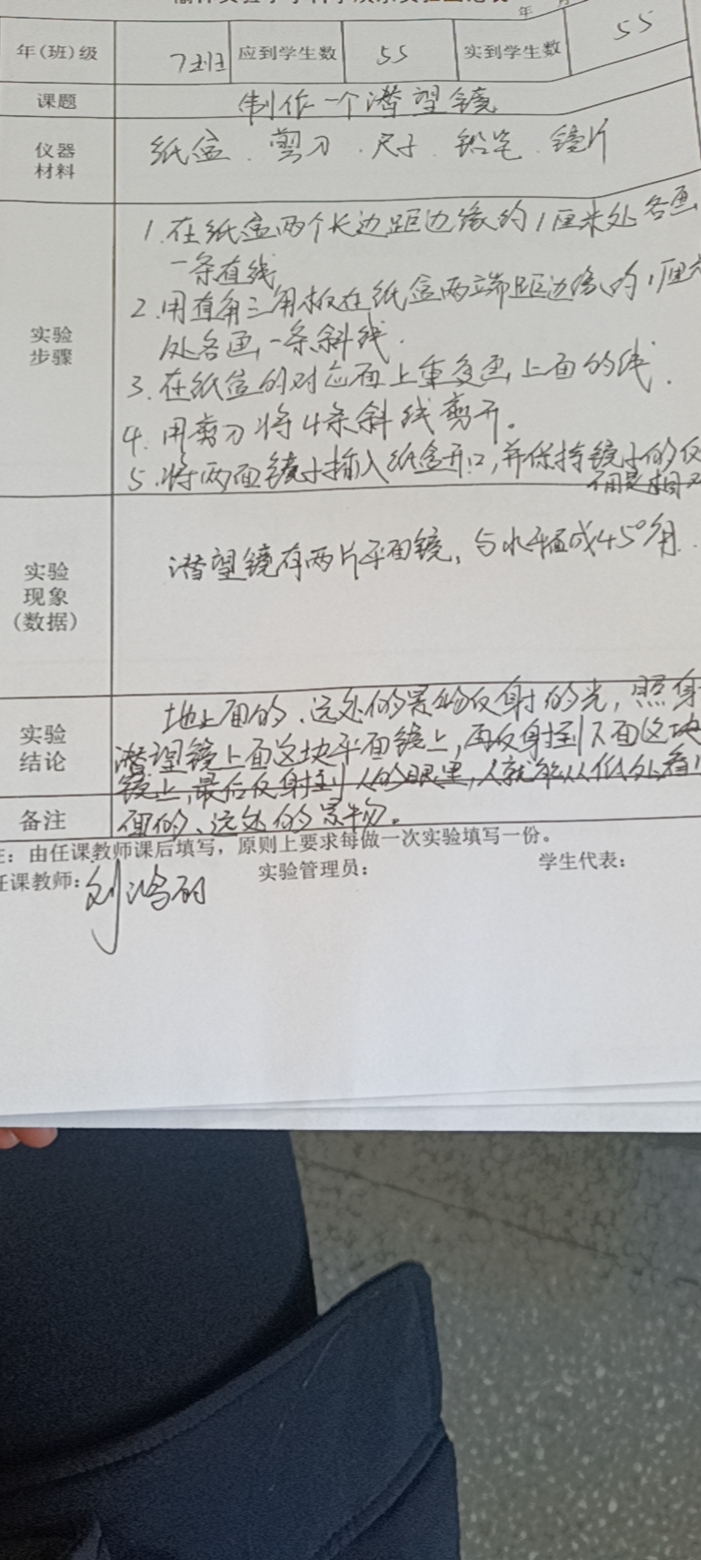 年
年(班)级 7班 应到学生数 55 实到学生数 55
课题 制作一个潜望镜
仪器
材料
纸盒、剪刀、尺子、铅笔、镜片
实验
步骤
1.在纸盒两个长边距边缘约1厘米处各画
一条直线
2.用直角三角板在纸盒两端距边缘约1厘米
处各画一条斜线.
3.在纸盒的对应面上重复画上面的线.
4.用剪刀将4条斜线剪开。
5.将两面镜子插入纸盒开口,并保持镜子的反
面是相对
实验
现象
(数据)
潜望镜有两片平面镜,与水平面成45°角.
实验
结论
地上面的、远处的景物反射的光,照射
潜望镜上面这块平面镜上,再反射到下面这块
镜上,最后反射到人的眼里,人就能从低处看
面的、远处的景物。
备注
注:由任课教师课后填写,原则上要求每做一次实验填写一份。
任课教师: 实验管理员: 学生代表: